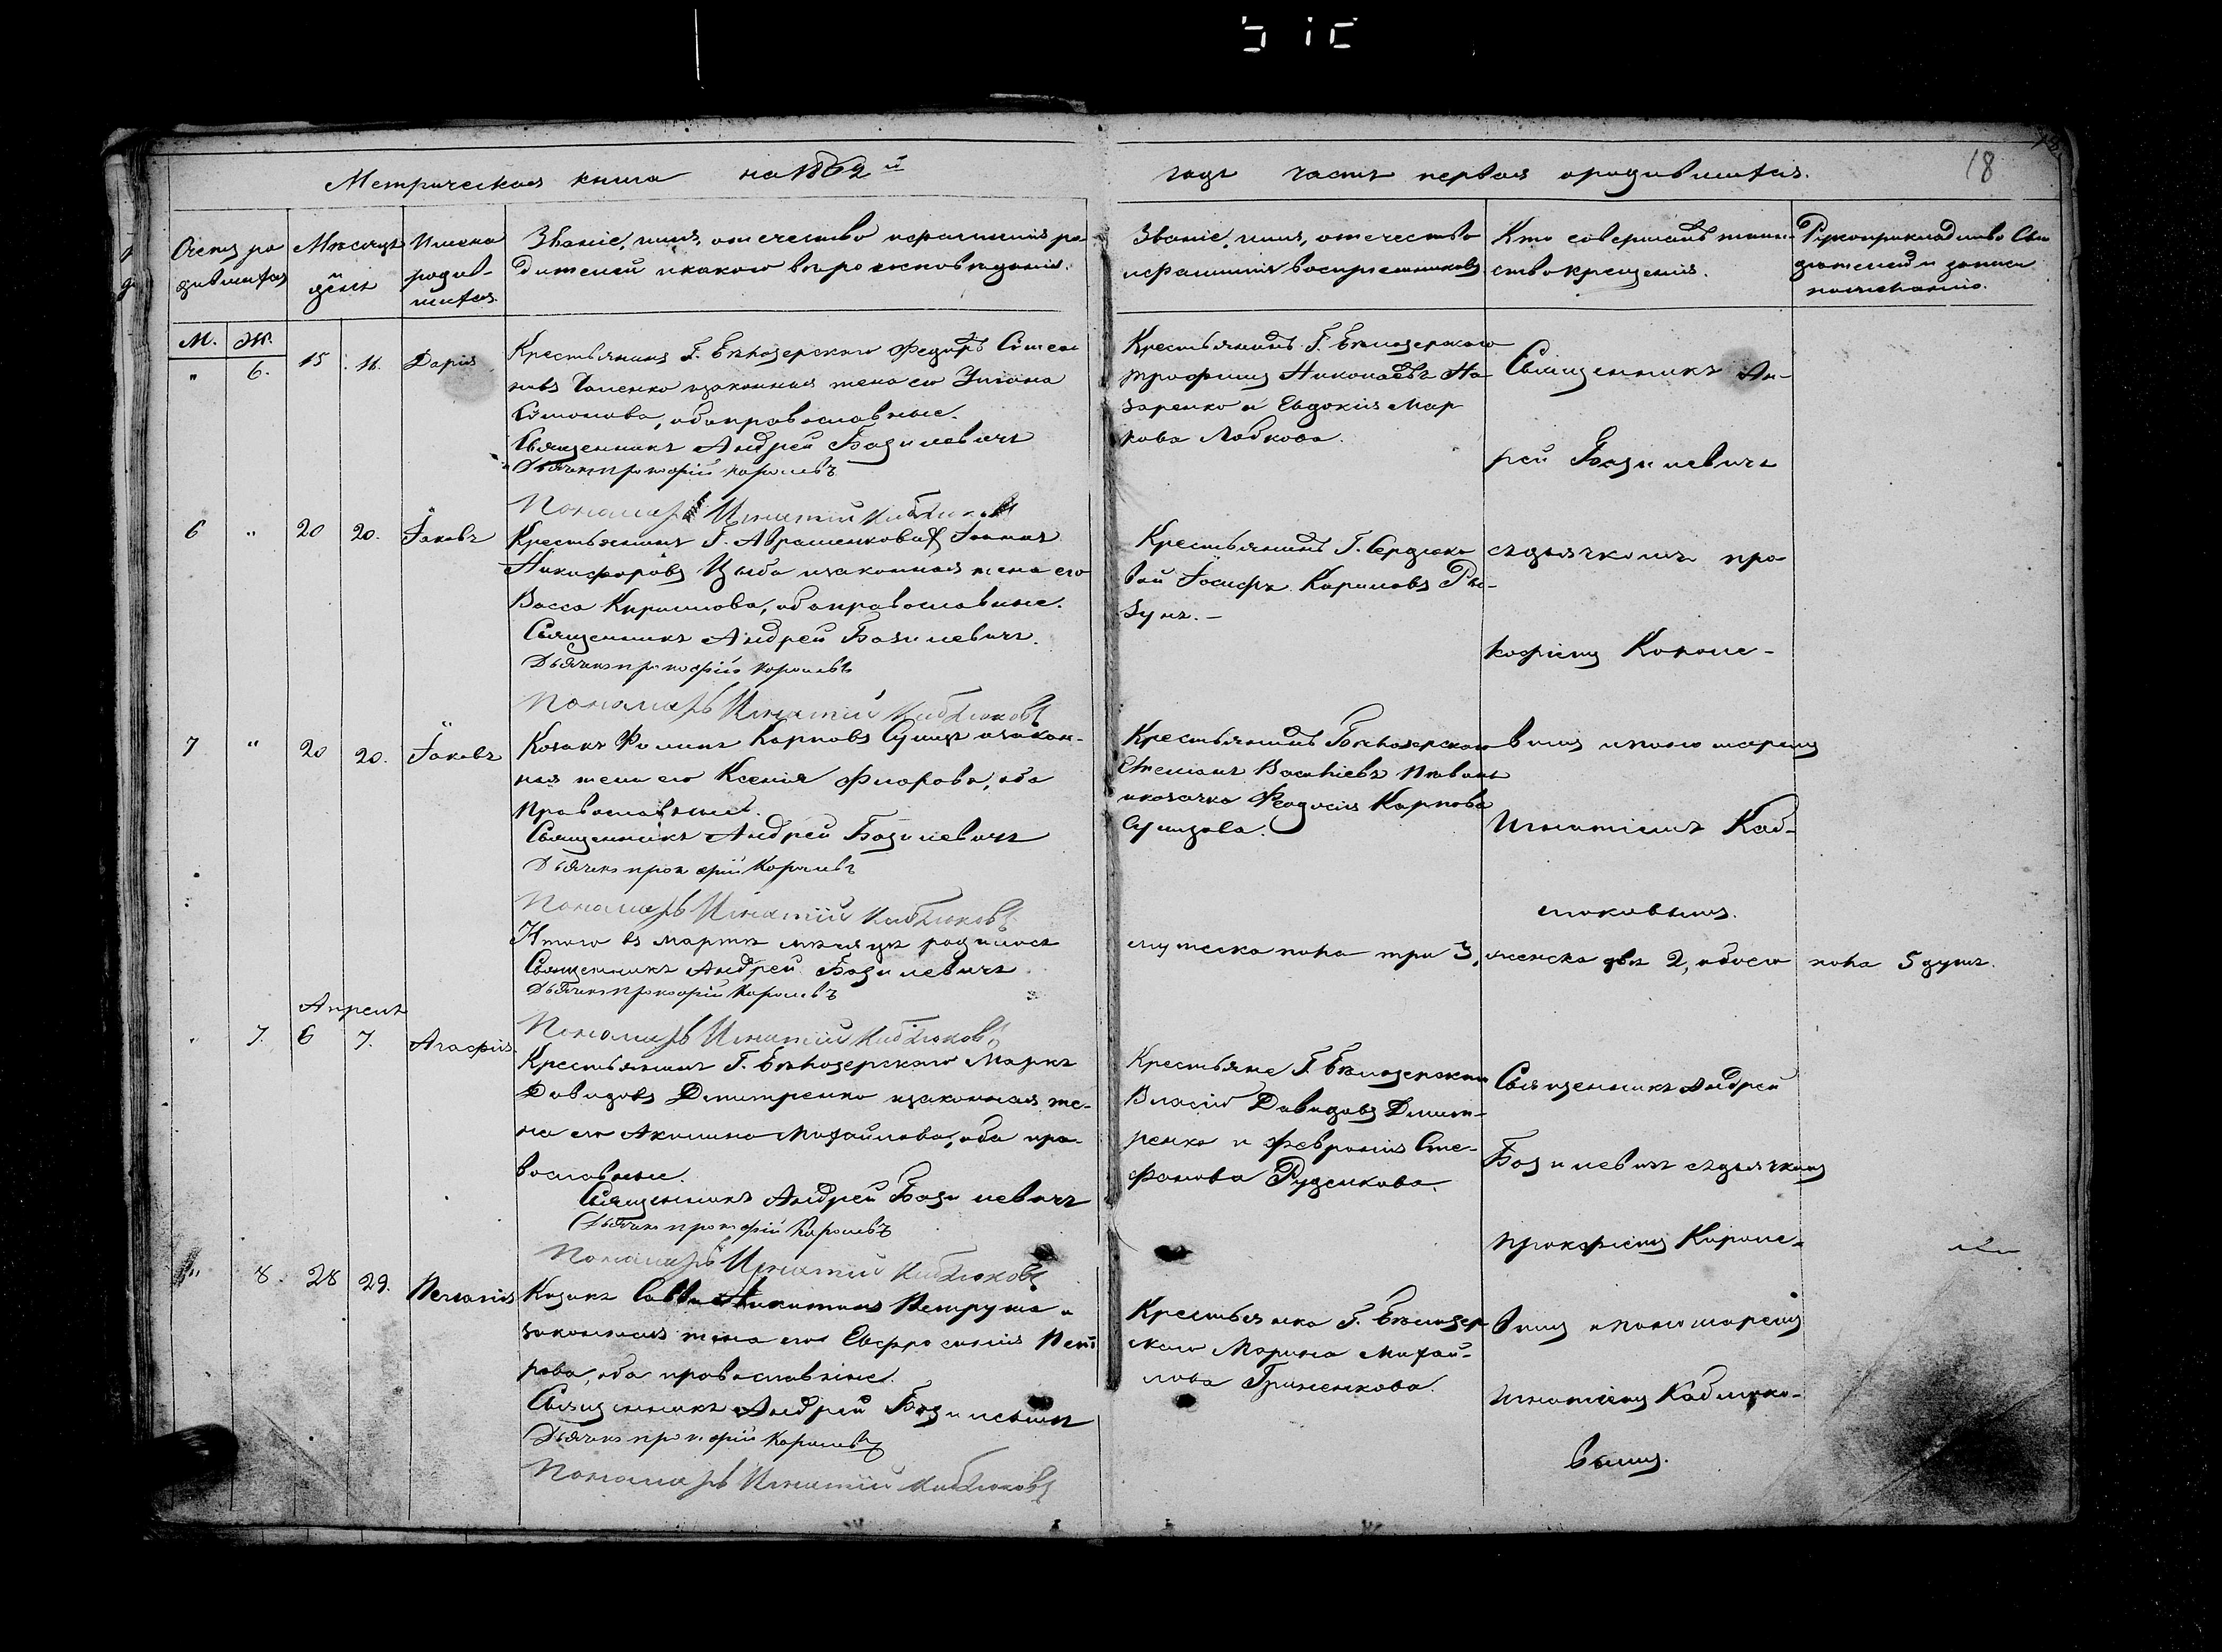 Метрическая книга на 1862й
годъ часть первая о родившихся.
18
Счетъ ро
дившихся
Мѣсяцъ
и день
Имена
родив-
шихся.
Званіе, имя, отечество и фамилія ро-
дителей и какого вѣроисповѣданія.
Званіе, имя, отечество
и фамилія воспріемниковъ.
Кто совершалъ таин-
ство крещенія.
Рукоприкладство Сви
дѣтелей и записи
по желанію.
М. Ж.
" 6. 15 16. Дарія
Крестьянинъ Г. Бѣлозерского Федоръ Симео
новъ и законная жена его
Симонова, оба православные.
Священникъ Андрей Базилевичъ
Дьячекъ Прокофій Королевъ
Пономарь Игнатій Каблюковъ
Крестьянинъ Г. Бѣлозерского
Трофимъ Николаевъ На
заренко и Евдокія Мар
кова Лобкова.
Священникъ Ан-
рей Базилевичъ
6 " 20 20. Іаковъ
Крестьянинъ Г. Авраменковой Іоаннъ
Никифоровъ Цыба и законная жена его
Васса Кирилова, оба православные.
Священникъ Андрей Базилевичъ.
Дьячекъ Прокофій Королевъ
Пономарь Игнатій Каблюковъ
Крестьянинъ Г. Сердюко
вой Іосифъ Кириловъ
съ дьячкомъ Про
кофіемъ Короле-
7 " 20 20. Іаковъ
Козакъ Филипъ Карповъ и закон-
ная жена его Ксенія Флорова, оба
Православные.
Священникъ Андрей Базилевичъ
Дьячекъ Прокофій Королевъ
Пономарь Игнатій Каблюковъ
Крестьянинъ Бѣлозерского
Стефанъ Васильевъ
и козачка Феодосія Карпова
вымъ и пономаремъ
Игнатіемъ Каб-
люковымъ.
Итого въ мартѣ мѣсяцѣ родилось
мужеска пола три 3, женска двѣ 2, обоего пола 5 душъ.
Священникъ Андрей Базилевичъ
Дьячекъ Прокофій Королевъ
Пономарь Игнатій Каблюковъ
Апрель
" 7. 6 7. Агафія.
Крестьянинъ Г. Бѣлозерского Маркъ
Давидовъ Дмитренко и законная же-
на его Акилина Михайлова, оба пра-
вославные.
Священникъ Андрей Базилевичъ
Дьячекъ Прокофій Королевъ
Пономарь Игнатій Каблюковъ
Крестьяне Г. Бѣлозерского
Власій Давидовъ Дмит-
ренко и Февронія Сте-
фанова Руденкова.
Священникъ Андрей
Базилевичъ съ дьячкомъ
Прокофіемъ Короле-
" 8. 28 29. Пелагія
Козакъ Савва Никитинъ и
законная жена его Евфросинія Пет
рова, оба православные.
Священникъ Андрей Базилевичъ
Дьячекъ Прокофій Королевъ
Пономарь Игнатій Каблюковъ
Крестьянка Г. Бѣлозер
ского Марина Михай-
лова Гриненкова.
вымъ и пономаремъ
Игнатіемъ Каблюко-
вымъ.